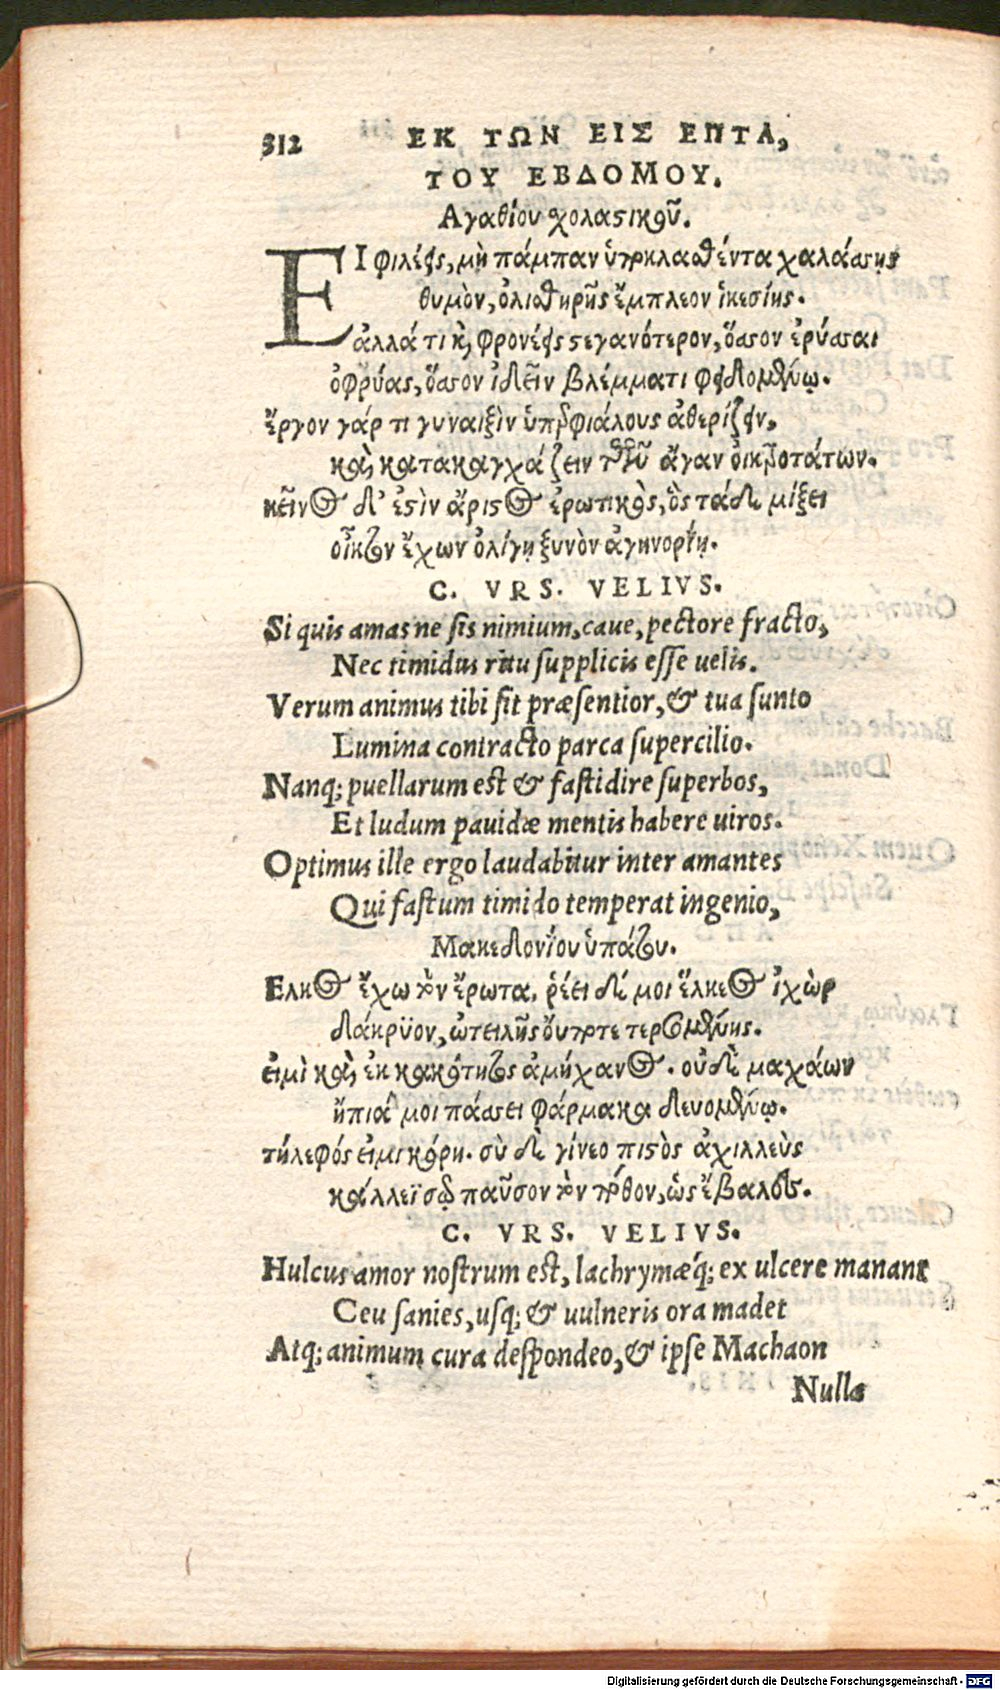 312 ΕΚ ΤΩΝ ΕΙΣ ΕΠΤΑ,
ΤΟΥ ΕΒΔΟΜΟΥ.
Αγαθίου χολαϛικοῦ.
ΕΙ φιλέεις, μὴ πάμπαν ὑποκλασθέντα χαλάσσῃς
θυμὸν, ὀλισθηρῆς ἔμπλεον ἱκεσίης.
ἀλλά τι καὶ φρονέεις ϛεγανότερον, ὅσσον ἐρύσσαι
ὀφρύας, ὅσσον ἰδεῖν βλέμματι φειδομένῳ.
ἔργον γάρ τι γυναιξὶν ὑπερφιάλους ἀθερίζειν,
καὶ κατακαγχάζειν τῶν ἄγαν οἰκτροτάτων.
κεῖνος δ' ἐϛὶν ἄριϛος ἐρωτικὸς, ὃς τάδε μίξει
οἶκτον ἔχων ὀλίγῃ ξυνὸν ἀγηνορίῃ.
C. VRS. VELIVS.
Si quis amas ne sis nimium, caue, pectore fracto,
Nec timidus ritu supplicis esse uelis.
Verum animus tibi sit præsentior, & tua sunto
Lumina contracto parca supercilio.
Nanq; puellarum est & fastidire superbos,
Et ludum pauidæ mentis habere uiros.
Optimus ille ergo laudabitur inter amantes
Qui fastum timido temperat ingenio,
Μακεδονίου ὑπάτου.
Ελκος ἔχω τὸν ἔρωτα, ῥέει δέ μοι ἕλκεος ἰχὼρ
δάκρϋον, ὠτειλῆς οὔποτε τερσομένης.
εἰμὶ καὶ ἐκ κακότητος ἀμήχανος. οὐδὲ μαχάων
ἤπιά μοι πάσσει φάρμακα δευομένῳ.
τήλεφός εἰμι κόρη. σὺ δὲ γίνεο πιϛὸς ἀχιλλεὺς
κάλλεϊ σῷ παῦσον τὸν πόθον, ὡς ἔβαλες.
C. VRS. VELIVS.
Hulcus amor nostrum est, lachrymæq; ex ulcere manant
Ceu sanies, usq; & uulneris ora madet
Atq; animum cura despondeo, & ipse Machaon
Nulla
Digitalisierung gefördert durch die Deutsche Forschungsgemeinschaft - DFG